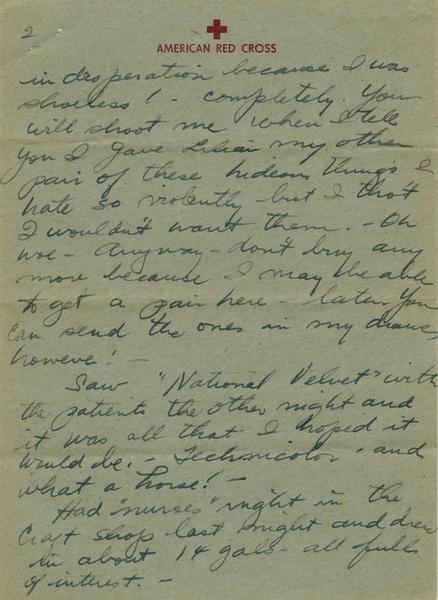 2
AMERICAN RED CROSS
in desperation because I was
shoeless! - completely. You
will shoot me when I tell
you I gave Lilian my other
pair of these hideous things I
hate so violently but I thot
I wouldn't want them. - Oh
woe - Anyway - don't buy any
more because I may be able
to get a pair here - later. You
can send the ones in my drawer,
however! -
Saw "National Velvet" with
the patients the other night and
it was all that I hoped it
would be. - Technicolor - and
what a horse! -
Had "nurses" night in the
Craft shop last night and drew
in about 14 gals - all full
of interest. -